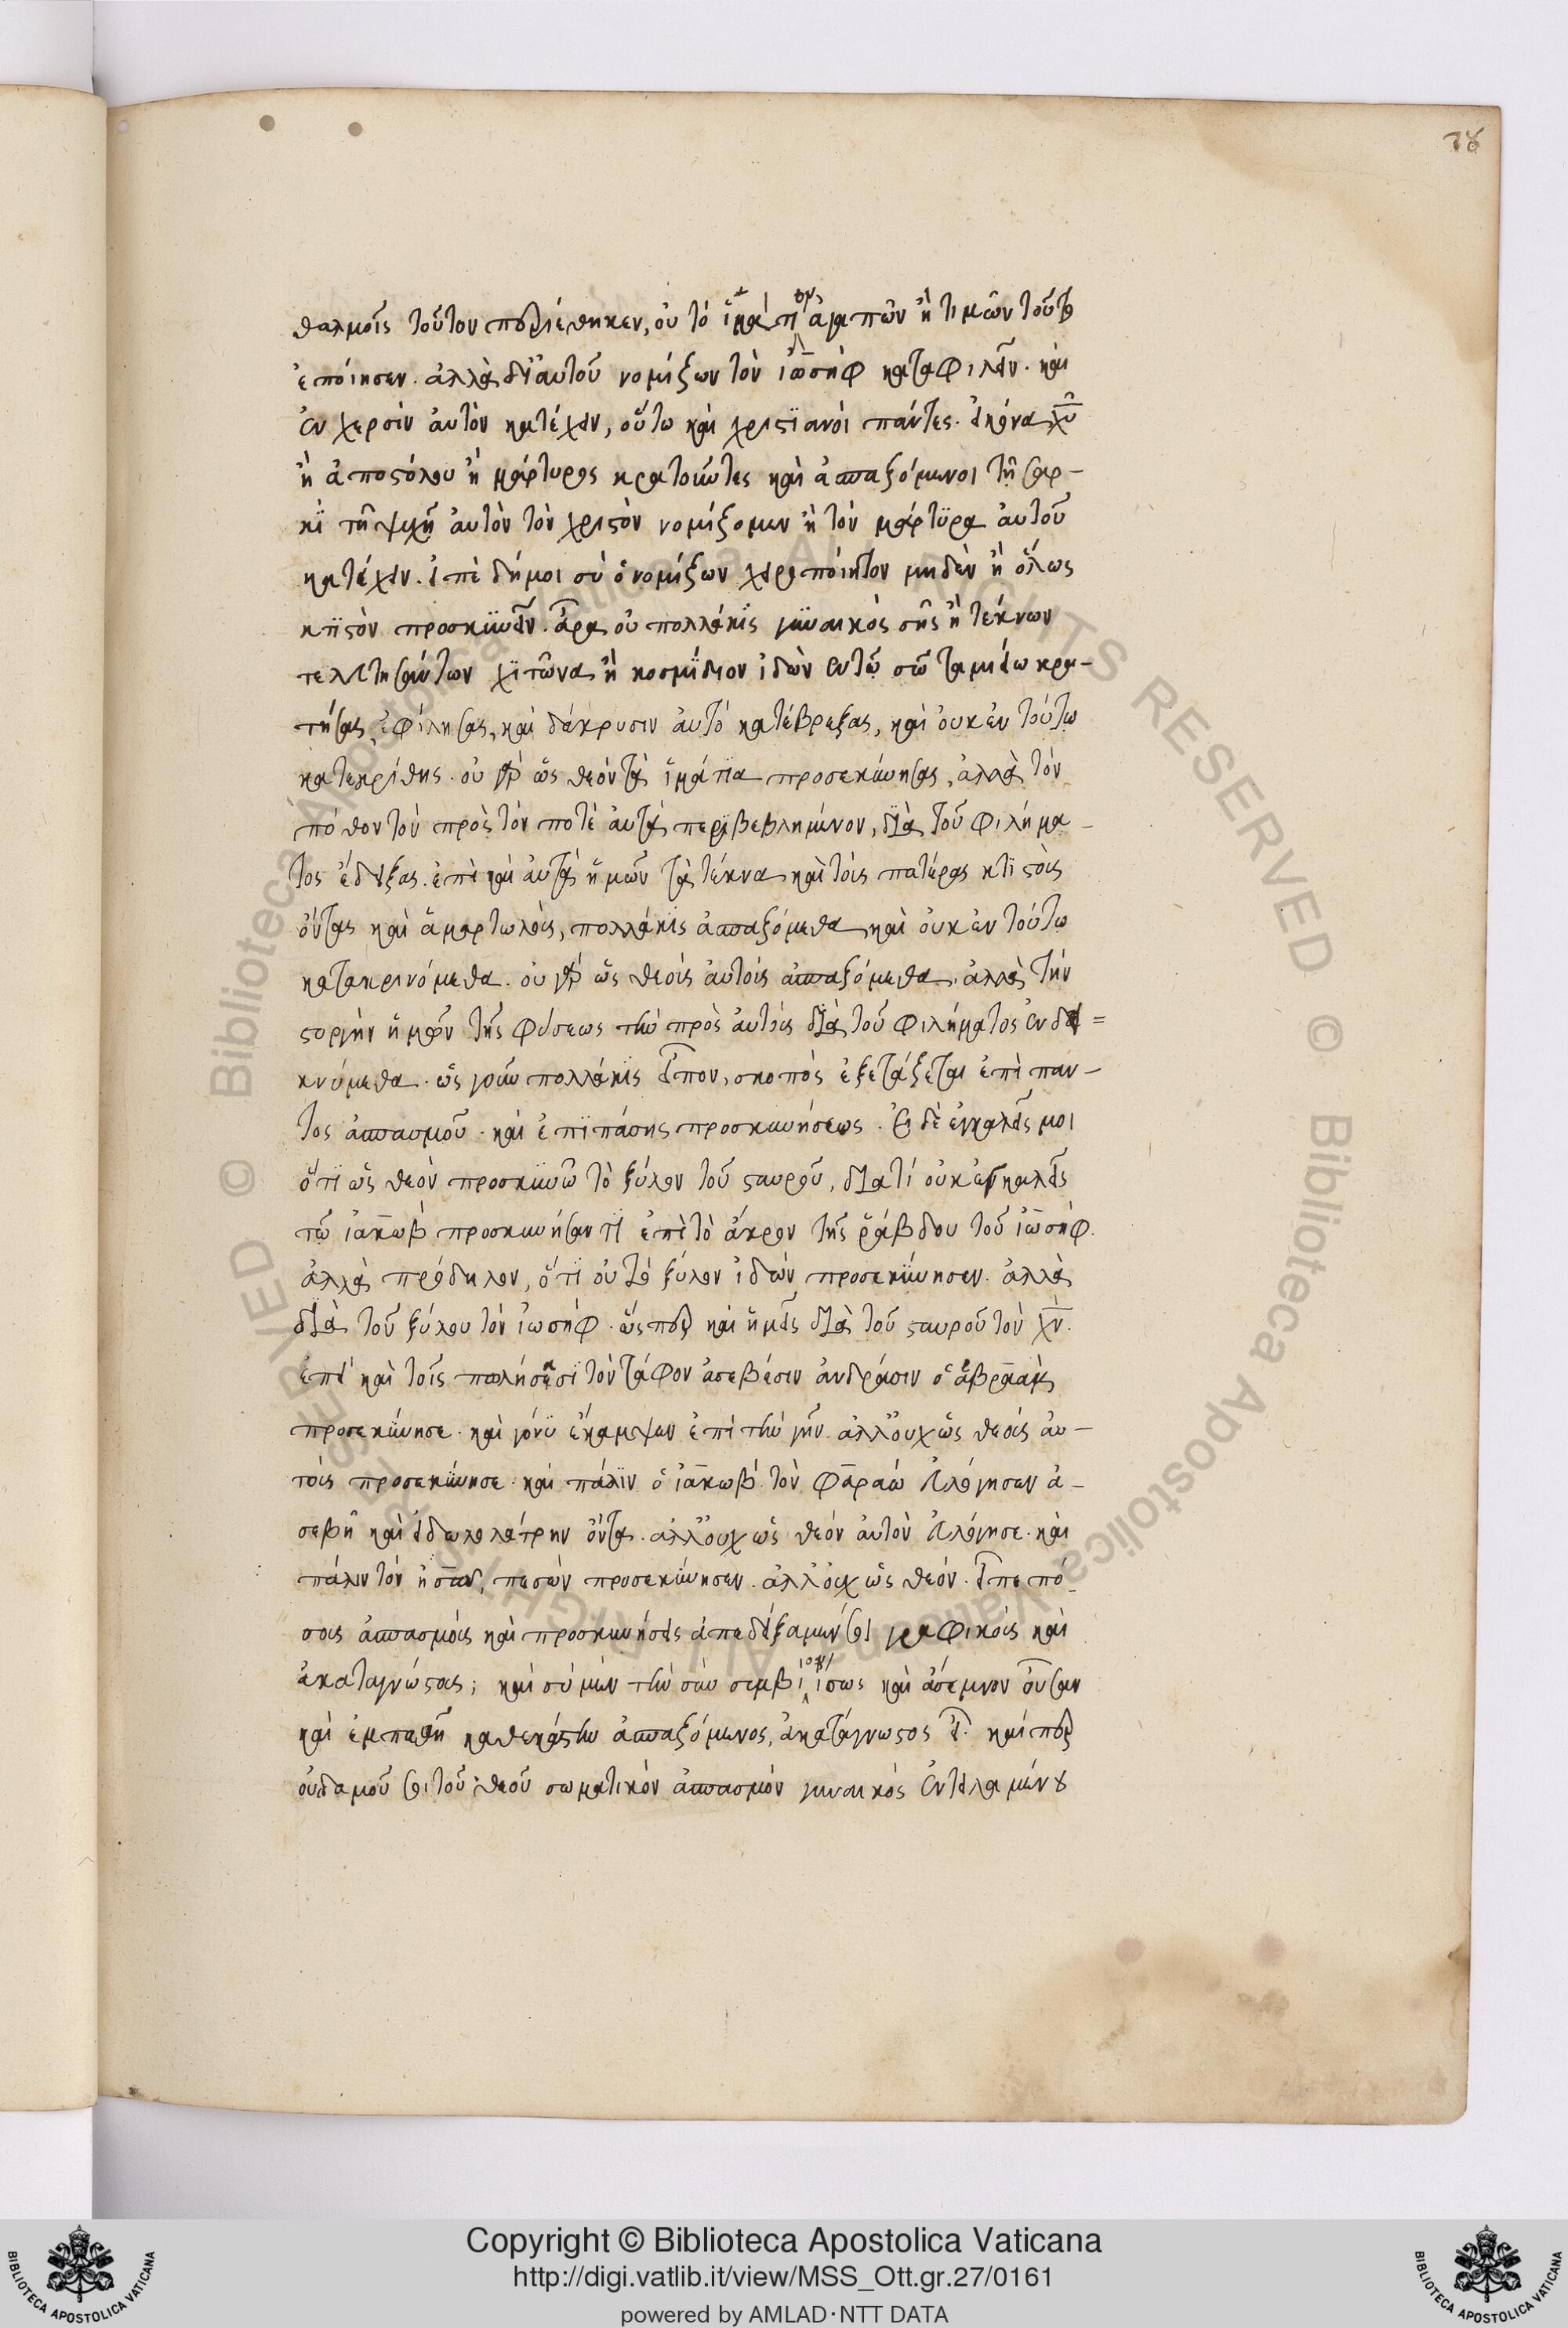 78
θαλμοῖς τοῦτον περιέθηκεν, οὐ τὸ ἱμάτιον ἀγαπῶν ἢ τιμῶν τοῦτο
ἐποίησεν. ἀλλὰ δι' αὐτοῦ νομίζων τὸν ἰωσὴφ καταφιλεῖν. καὶ
ἐν χερσὶν αὐτὸν κατέχειν, οὕτω καὶ χριστϊανοὶ πάντες. εἰκόνα χῦ
ἢ ἀποστόλου ἢ μάρτυρος κρατοῦντες καὶ ἀσπαζόμενοι τῇ σαρ-
κὶ τῇ ψυχῇ αὐτὸν τὸν χριστὸν νομίζομεν ἢ τὸν μάρτϋρα αὐτοῦ
κατέχειν. ἐπεὶ δή μοι σὺ ὁ νομίζων χειροποίητον μηδὲν ἢ ὅλως
κτϊστὸν προσκϋνεῖν. ἆρα οὐ πολλάκϊς γϋναικός σῆς ἢ τέκνων
τελευτησάντων χϊτῶνα ἢ κοσμΐδιον ἰδὼν ἐν τῷ σῷ ταμιείω κρα-
τήσας, ἐφίλησας, καὶ δάκρυσιν αὐτὸ κατέβρεξας, καὶ οὐκ ἐν τούτω
κατεκρίθης. οὐ γὰρ ὡς θεὸν τὰ ἱμάτϊα προσεκύνησας, ἀλλὰ τὸν
πόθον τὸν πρὸς τόν ποτὲ αὐτὰ περϊβεβλημένον, δϊὰ τοῦ φιλήμα-
τος ἔδειξας. ἐπεὶ καὶ αὐτὰ ἡμῶν τὰ τέκνα καὶ τοὺς πατέρας κτϊστοὺς
ὄντας καὶ ἁμαρτωλοὺς, πολλάκϊς ἀσπαζόμεθα καὶ οὐκ ἐν τούτω
κατακρινόμεθα. οὐ γὰρ ὡς θεοὺς αὐτοὺς ἀσπαζόμεθα, ἀλλὰ τὴν
στοργὴν ἡμῶν τῆς φύσεως τὴν πρὸς αὐτοὺς δϊὰ τοῦ φιλήματος ἐνδει=
κνύμεθα. ὡς γοῦν πολλάκϊς εἶπον, σκοπὸς ἐξετάζεται ἐπὶ παν-
τὸς ἀσπασμοῦ. καὶ ἐπϊ πάσης προσκυνήσεως. εἰ δὲ ἐγκαλεῖς μοι
ὅτϊ ὡς θεὸν προσκϋνῶ τὸ ξύλον τοῦ σταυροῦ, δϊατί οὐκ ἐγκαλεῖς
τῷ ἰακὼβ προσκυνήσαντϊ ἐπὶ τὸ ἄκρον τῆς ῥάβδου τοῦ ἰωσήφ.
ἀλλὰ πρόδηλον, ὅτϊ οὐ τὸ ξύλον ἰδὼν προσεκϋνησεν. ἀλλὰ
δϊὰ τοῦ ξύλου τὸν ἰωσήφ. ὥσπερ καὶ ἡμεῖς δϊὰ τοῦ σταυροῦ τὸν χν.
ἐπεὶ καὶ τοῖς πωλήσασϊ τὸν τάφον ἀσεβέσιν ἀνδράσιν ὁ ἀβραὰμ
προσεκύνησε. καὶ γόνϋ ἔκαμψεν ἐπὶ τὴν γῆν. ἀλλ' οὐχ ὡς θεοὺς αὐ-
τοὺς προσεκύνησε. καὶ πάλϊν ὁ ἰακὼβ τὸν φαραὼ εὐλόγησεν ἀ-
σεβῆ καὶ εἰδωλολάτρην ὄντα. ἀλλ' οὐχ ὡς θεὸν αὐτὸν εὐλόγησε. καὶ
πάλιν τὸν ἠσαῦ, πεσὼν προσεκύνησεν. ἀλλ' οὐχ ὡς θεόν. εἶπε πό-
σους ἀσπασμοὺς καὶ προσκυνήσεις ἀπεδείξαμέν σοι γραφικοὺς καὶ
ἀκαταγνώστους; καὶ σὺ μὲν τὴν σὴν σύμβιον ἴσως καὶ ἄσεμνον οὖσαν
καὶ ἐμπαθῆ καθεκάστην ἀσπαζόμενος, ἀκατάγνωστος εἶ. καίπερ
οὐδαμοῦ σοι τοῦ θεοῦ σωματικὸν ἀσπασμὸν γυναικὸς ἐντειλαμένου
Copyright © Biblioteca Apostolica Vaticana
http://digi.vatlib.it/view/MSS_Ott.gr.27/0161
powered by AMLAD·NTT DATA